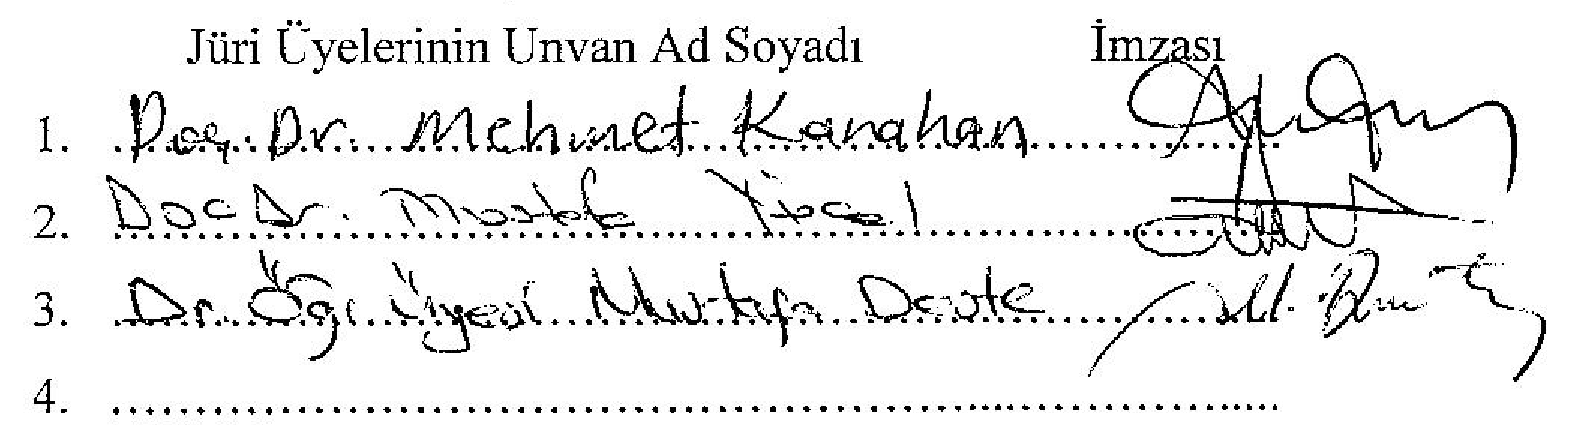 Jüri Üyelerinin Unvan Ad Soyadı İmzası
1. Doç. Dr. Mehmet Karahan
2. Doç Dr. Mustafa Yücel
3. Dr. Öğr. Üyesi
4.